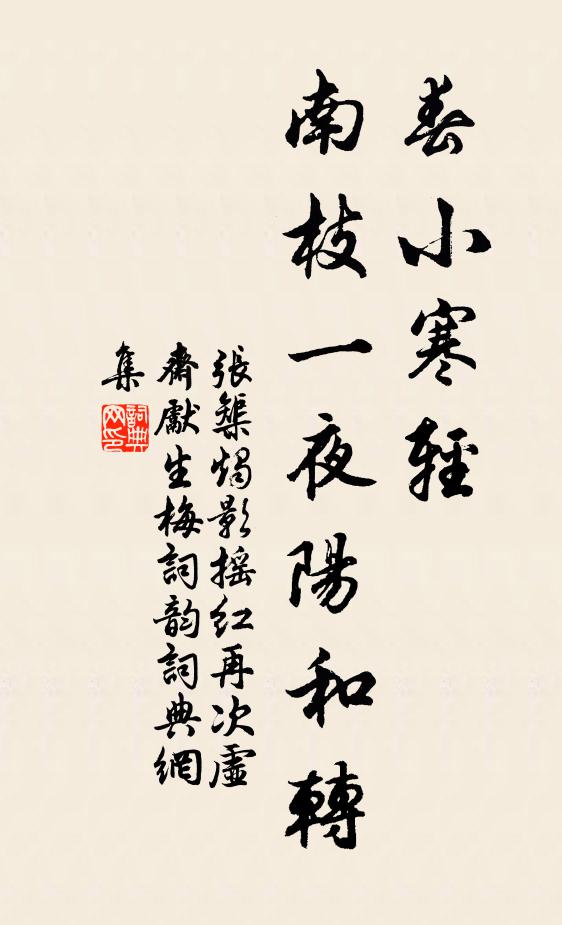 春小寒輕
南枝一夜陽和轉
張榘燭影搖紅再次虛
齋獻生梅詞韵詞典網
集
詞典网印